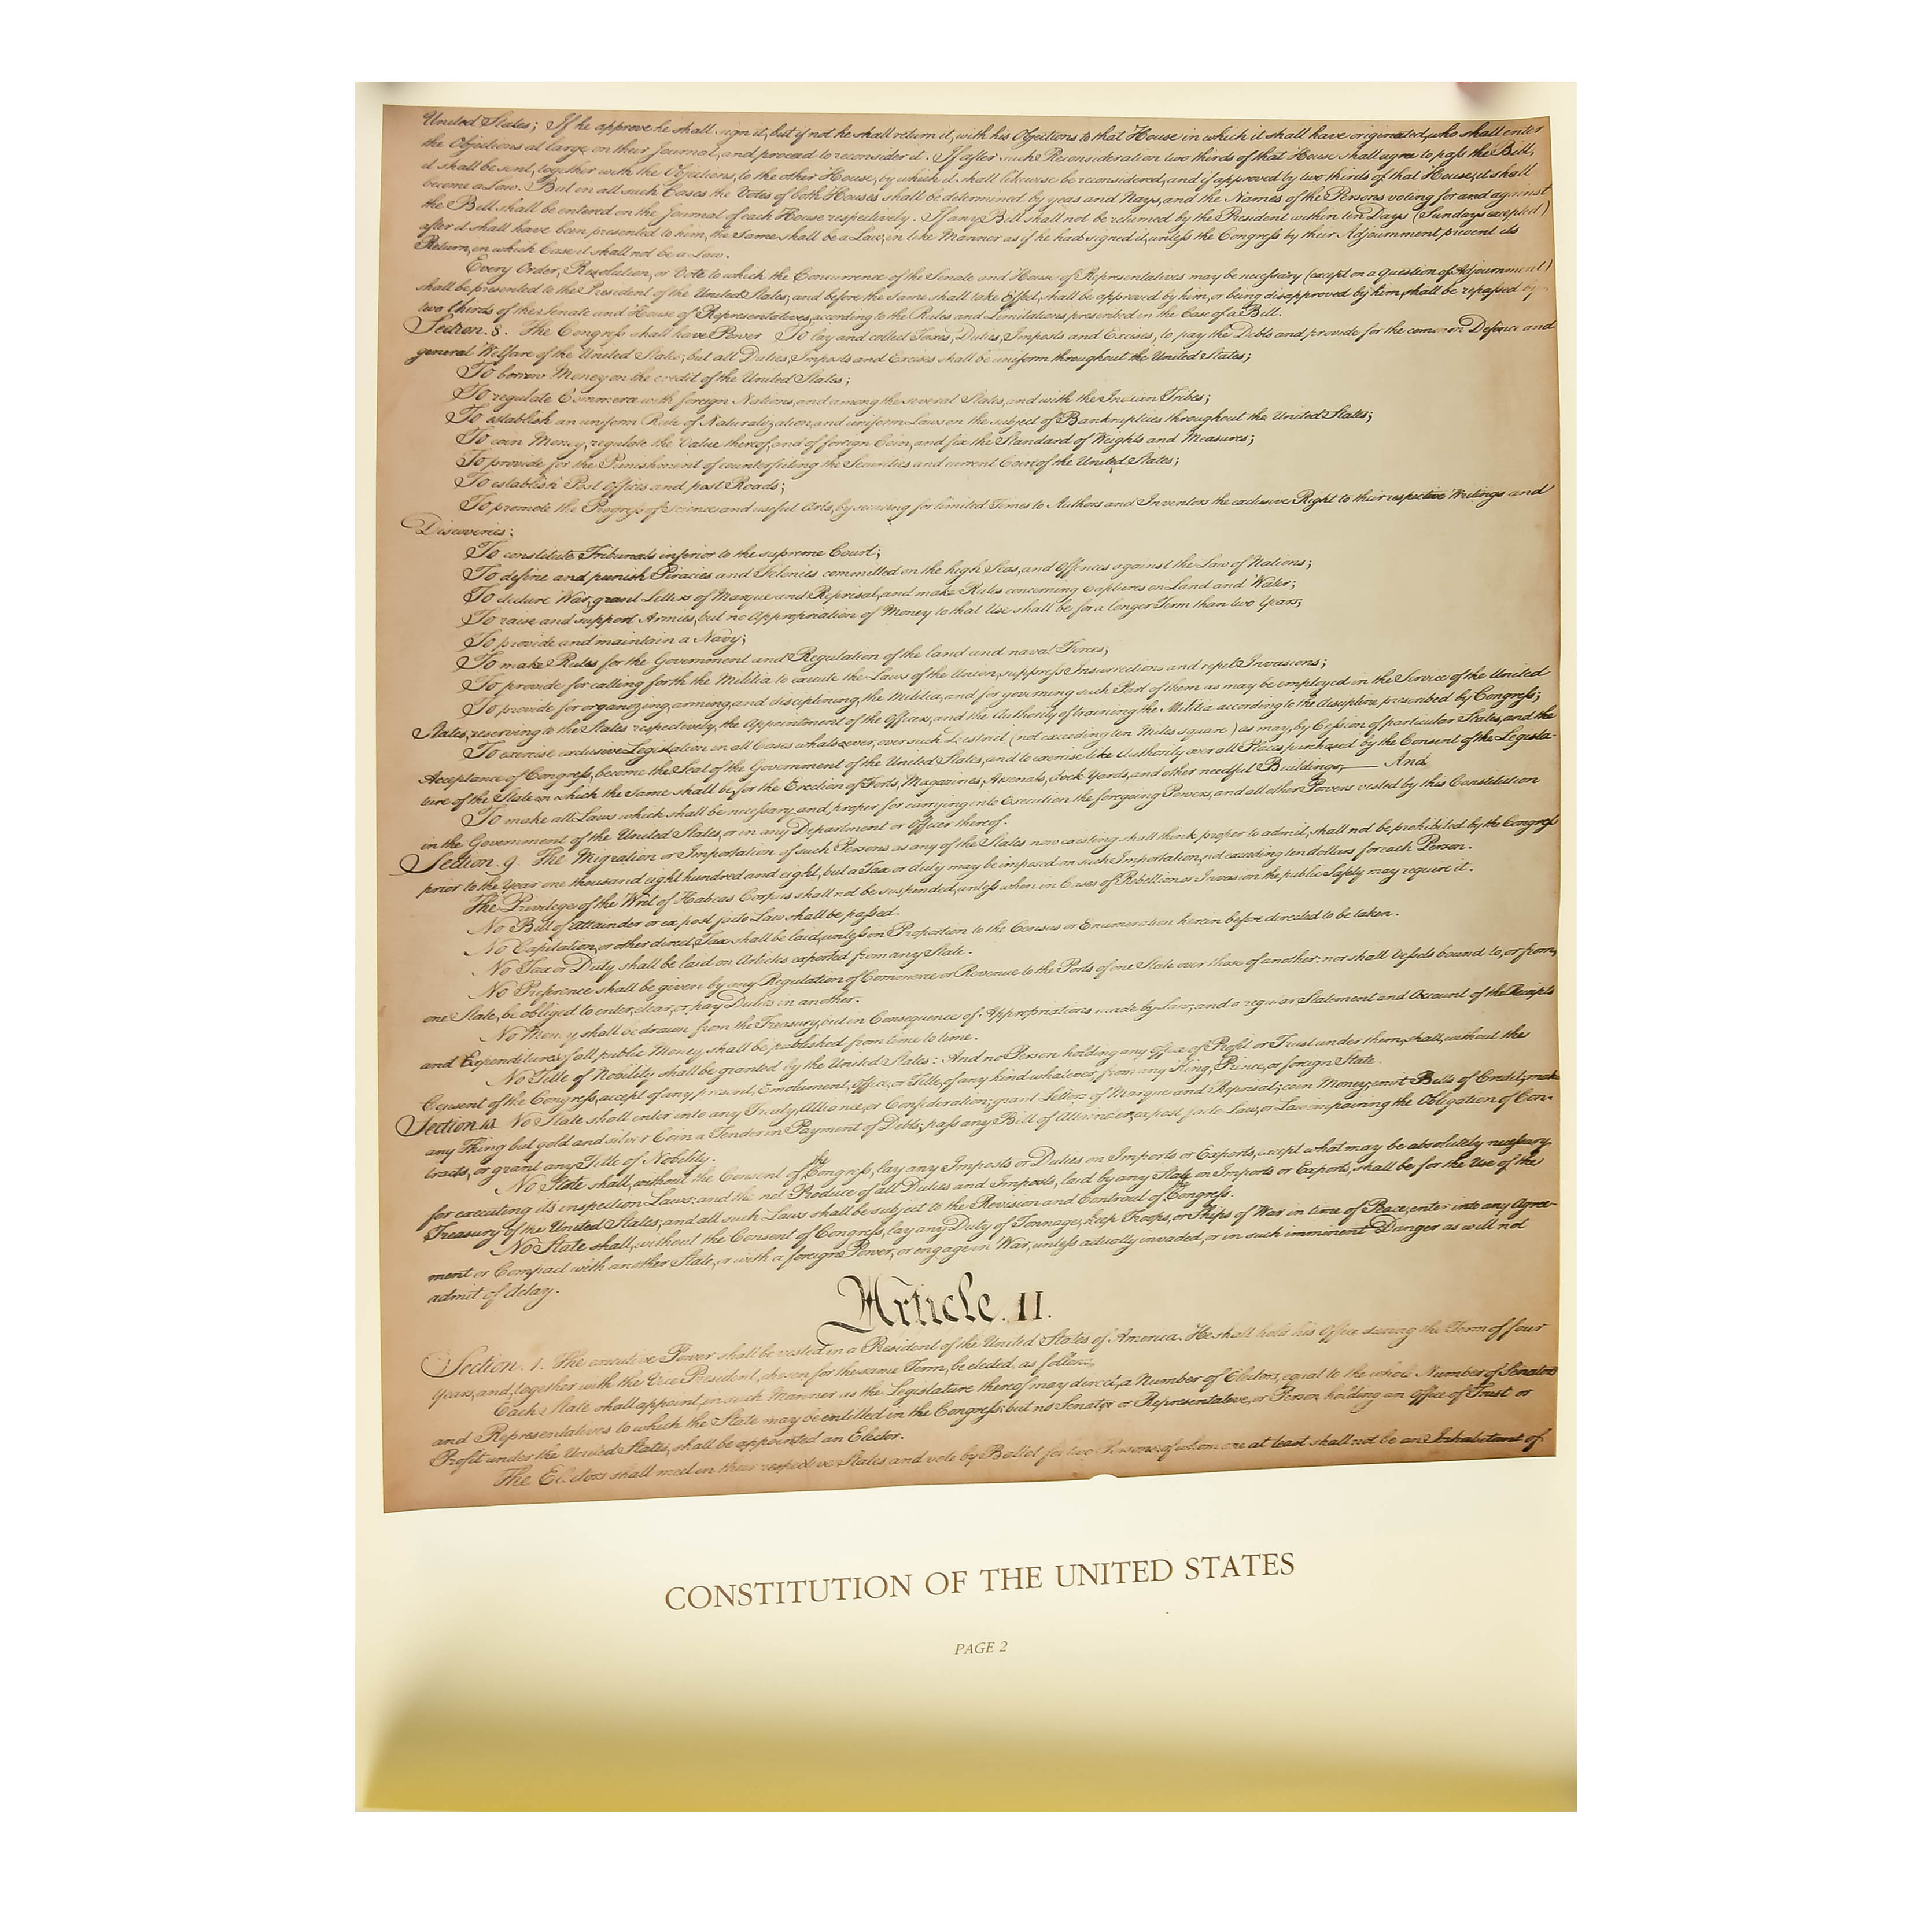 United States; If he approve he shall sign it, but if not he shall return it, with his Objections to that House in which it shall have originated, who shall enter
the Objections at large on their Journal, and proceed to reconsider it. If after such Reconsideration two thirds of that House shall agree to pass the Bill,
it shall be sent, together with the Objections, to the other House, by which it shall likewise be reconsidered, and if approved by two thirds of that House, it shall
become a Law. But in all such Cases the Votes of both Houses shall be determined by yeas and Nays, and the Names of the Persons voting for and against
the Bill shall be entered on the Journal of each House respectively. If any Bill shall not be returned by the President within ten Days (Sundays excepted)
after it shall have been presented to him, the Same shall be a Law, in like Manner as if he had signed it, unless the Congress by their Adjournment prevent its
Return, in which Case it shall not be a Law.
Every Order, Resolution, or Vote to which the Concurrence of the Senate and House of Representatives may be necessary (except on a question of Adjournment)
shall be presented to the President of the United States; and before the Same shall take Effect, shall be approved by him, or being disapproved by him, shall be repassed by
two thirds of the Senate and House of Representatives, according to the Rules and Limitations prescribed in the Case of a Bill.
Section. 8. The Congress shall have Power To lay and collect Taxes, Duties, Imposts and Excises, to pay the Debts and provide for the common Defence and
general Welfare of the United States; but all Duties, Imposts and Excises shall be uniform throughout the United States;
To borrow Money on the credit of the United States;
To regulate Commerce with foreign Nations, and among the several States, and with the Indian Tribes;
To establish an uniform Rule of Naturalization, and uniform Laws on the subject of Bankruptcies throughout the United States;
To coin Money, regulate the Value thereof, and of foreign Coin, and fix the Standard of Weights and Measures;
To provide for the Punishment of counterfeiting the Securities and current Coin of the United States;
To establish Post Offices and post Roads;
To promote the Progress of Science and useful Arts, by securing for limited Times to Authors and Inventors the exclusive Right to their respective Writings and
Discoveries;
To constitute Tribunals inferior to the supreme Court;
To define and punish Piracies and Felonies committed on the high Seas, and Offences against the Law of Nations;
To declare War, grant Letters of Marque and Reprisal, and make Rules concerning Captures on Land and Water;
To raise and support Armies, but no Appropriation of Money to that Use shall be for a longer Term than two Years;
To provide and maintain a Navy;
To make Rules for the Government and Regulation of the land and naval Forces;
To provide for calling forth the Militia to execute the Laws of the Union, suppress Insurrections and repel Invasions;
To provide for organizing, arming, and disciplining, the Militia, and for governing such Part of them as may be employed in the Service of the United
States, reserving to the States respectively, the Appointment of the Officers, and the Authority of training the Militia according to the discipline prescribed by Congress;
To exercise exclusive Legislation in all Cases whatsoever, over such District (not exceeding ten Miles square) as may, by Cession of particular States, and the
Acceptance of Congress, become the Seat of the Government of the United States, and to exercise like Authority over all Places purchased by the Consent of the Legisla-
ture of the State in which the Same shall be, for the Erection of Forts, Magazines, Arsenals, dock-Yards, and other needful Buildings; — And
To make all Laws which shall be necessary and proper for carrying into Execution the foregoing Powers, and all other Powers vested by this Constitution
in the Government of the United States, or in any Department or Officer thereof.
Section. 9. The Migration or Importation of such Persons as any of the States now existing shall think proper to admit, shall not be prohibited by the Congress
prior to the Year one thousand eight hundred and eight, but a Tax or duty may be imposed on such Importation, not exceeding ten dollars for each Person.
The Privilege of the Writ of Habeas Corpus shall not be suspended, unless when in Cases of Rebellion or Invasion the public Safety may require it.
No Bill of Attainder or ex post facto Law shall be passed.
No Capitation, or other direct, Tax shall be laid, unless in Proportion to the Census or Enumeration herein before directed to be taken.
No Tax or Duty shall be laid on Articles exported from any State.
No Preference shall be given by any Regulation of Commerce or Revenue to the Ports of one State over those of another: nor shall Vessels bound to, or from,
one State, be obliged to enter, clear, or pay Duties in another.
No Money shall be drawn from the Treasury, but in Consequence of Appropriations made by Law; and a regular Statement and Account of the Receipts
and Expenditures of all public Money shall be published from time to time.
No Title of Nobility shall be granted by the United States: And no Person holding any Office of Profit or Trust under them, shall, without the
Consent of the Congress, accept of any present, Emolument, Office, or Title, of any kind whatever, from any King, Prince, or foreign State.
Section. 10. No State shall enter into any Treaty, Alliance, or Confederation; grant Letters of Marque and Reprisal; coin Money; emit Bills of Credit; make
any Thing but gold and silver Coin a Tender in Payment of Debts; pass any Bill of Attainder, ex post facto Law, or Law impairing the Obligation of Con-
tracts, or grant any Title of Nobility.
No State shall, without the Consent of the Congress, lay any Imposts or Duties on Imports or Exports, except what may be absolutely necessary
for executing its inspection Laws: and the net Produce of all Duties and Imposts, laid by any State on Imports or Exports, shall be for the Use of the
Treasury of the United States; and all such Laws shall be subject to the Revision and Controul of the Congress.
No State shall, without the Consent of Congress, lay any Duty of Tonnage, keep Troops, or Ships of War in time of Peace, enter into any Agree-
ment or Compact with another State, or with a foreign Power, or engage in War, unless actually invaded, or in such imminent Danger as will not
admit of delay.
Article. II.
Section. 1. The executive Power shall be vested in a President of the United States of America. He shall hold his Office during the Term of four
Years, and, together with the Vice President, chosen for the same Term, be elected, as follows
Each State shall appoint, in such Manner as the Legislature thereof may direct, a Number of Electors, equal to the whole Number of Senators
and Representatives to which the State may be entitled in the Congress: but no Senator or Representative, or Person holding an Office of Trust or
Profit under the United States, shall be appointed an Elector.
The Electors shall meet in their respective States, and vote by Ballot for two Persons, of whom one at least shall not be an Inhabitant of
CONSTITUTION OF THE UNITED STATES
PAGE 2